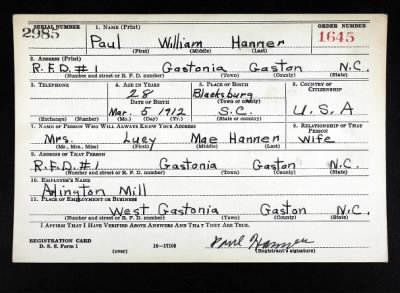 SERIAL NUMBER 1. NAME (Print) ORDER NUMBER
2985 Paul William Hanner 1645
(First) (Middle) (Last)
2. ADDRESS (Print)
R.F.D. #1 Gastonia Gaston N.C.
(Number and street or R. F. D. number) (Town) (County) (State)
3. TELEPHONE 4. AGE IN YEARS 5. PLACE OF BIRTH 6. COUNTRY OF CITIZENSHIP
28 Blacksburg
DATE OF BIRTH (Town or county)
Mar. 5 1912 S.C. U.S.A
(Exchange) (Number) (Mo.) (Day) (Yr.) (State or country)
7. NAME OF PERSON WHO WILL ALWAYS KNOW YOUR ADDRESS 8. RELATIONSHIP OF THAT PERSON
Mrs. Lucy Mae Hanner Wife
(Mr., Mrs., Miss) (First) (Middle) (Last)
9. ADDRESS OF THAT PERSON
R.F.D. #1 Gastonia Gaston N.C.
(Number and street or R. F. D. number) (Town) (County) (State)
10. EMPLOYER'S NAME
Arlington Mill
11. PLACE OF EMPLOYMENT OR BUSINESS
West Gastonia Gaston N.C.
(Number and street or R. F. D. number) (Town) (County) (State)
I AFFIRM THAT I HAVE VERIFIED ABOVE ANSWERS AND THAT THEY ARE TRUE.
REGISTRATION CARD
D. S. S. Form 1 (over) 16—17105 Paul Hanner
(Registrant's signature)